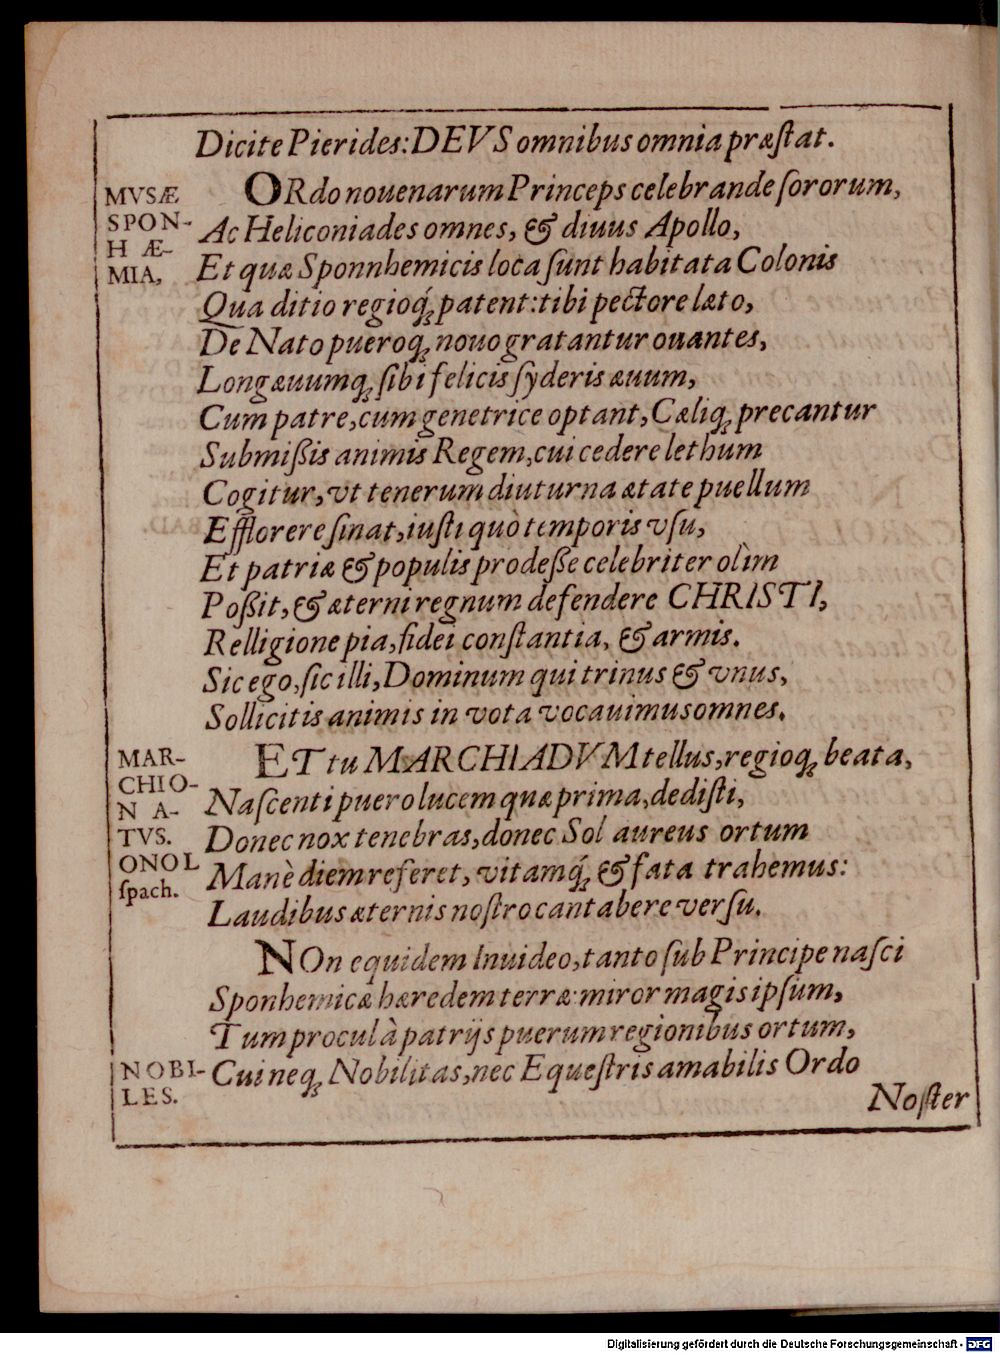 Dicite Pierides: DEVS omnibus omnia præſtat.
MVSÆ
SPON-
H Æ-
MIA,
ORdo nouenarum Princeps celebrande ſororum,
Ac Heliconiades omnes, & diuus Apollo,
Et quæ Sponnhemicis loca ſunt habitata Colonis
Qua ditio regioq́; patent: tibi pectore læto,
De Nato pueroq; nouo gratantur ouantes,
Longæuumq; ſibi felicis ſyderis æuum,
Cum patre, cum genetrice optant, Cæliq; precantur
Submiſsis animis Regem, cui cedere lethum
Cogitur, vt tenerum diuturna ætate puellum
Efflorere ſinat, iuſti quò temporis vſu,
Et patriæ & populis prodeſſe celebriter olìm
Poßit, & æterni regnum defendere CHRISTI,
Relligione pia, fidei conſtantia, & armis.
Sic ego, ſic illi, Dominum qui trinus & vnus,
Sollicitis animis in vota vocauimus omnes.
MAR-
CHIO-
N A-
TVS.
ONOL
ſpach.
ET tu MARCHIADVM tellus, regioq; beata,
Naſcenti puero lucem quæ prima, dediſti,
Donec nox tenebras, donec Sol aureus ortum
Manè diem referet, vitamq́; & fata trahemus:
Laudibus æternis noſtro cantabere verſu.
NOn equidem Inuideo, tanto ſub Principe naſci
Sponhemicæ hæredem terræ: miror magis ipſum,
Tum procul à patrijs puerum regionibus ortum,
NOBI-
LES.
Cui neq; Nobilitas, nec Equeſtris amabilis Ordo
Noſter
Digitalisierung gefördert durch die Deutsche Forschungsgemeinschaft - DFG